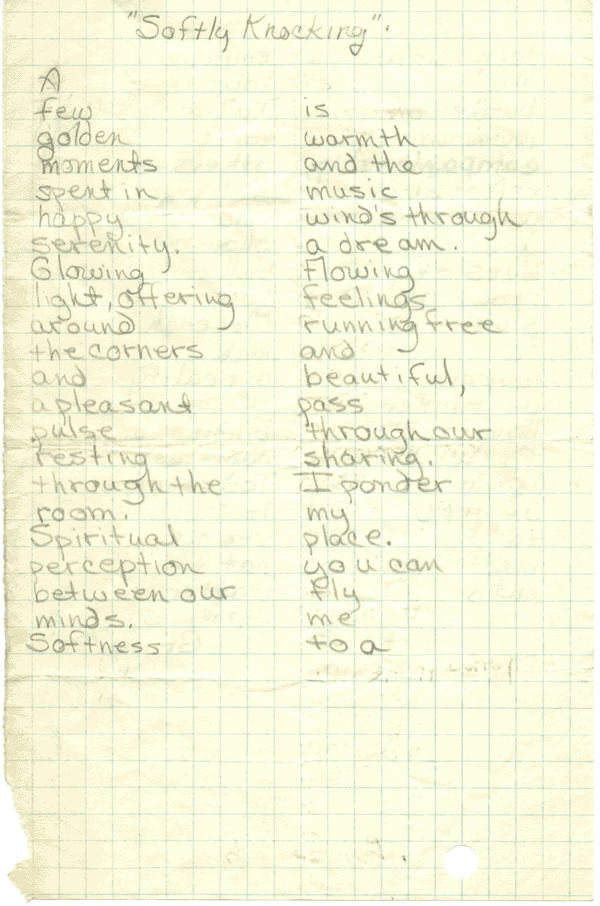 "Softly Knocking".
A
few
golden
moments
spent in
happy
serenity.
Glowing
light, offering
around
the corners
and
a pleasant
pulse
resting
through the
room.
Spiritual
perception
between our
minds.
Softness
is
warmth
and the
music
wind's through
a dream.
Flowing
feelings
running free
and
beautiful,
pass
through our
sharing.
I ponder
my
place.
you can
fly
me
to a